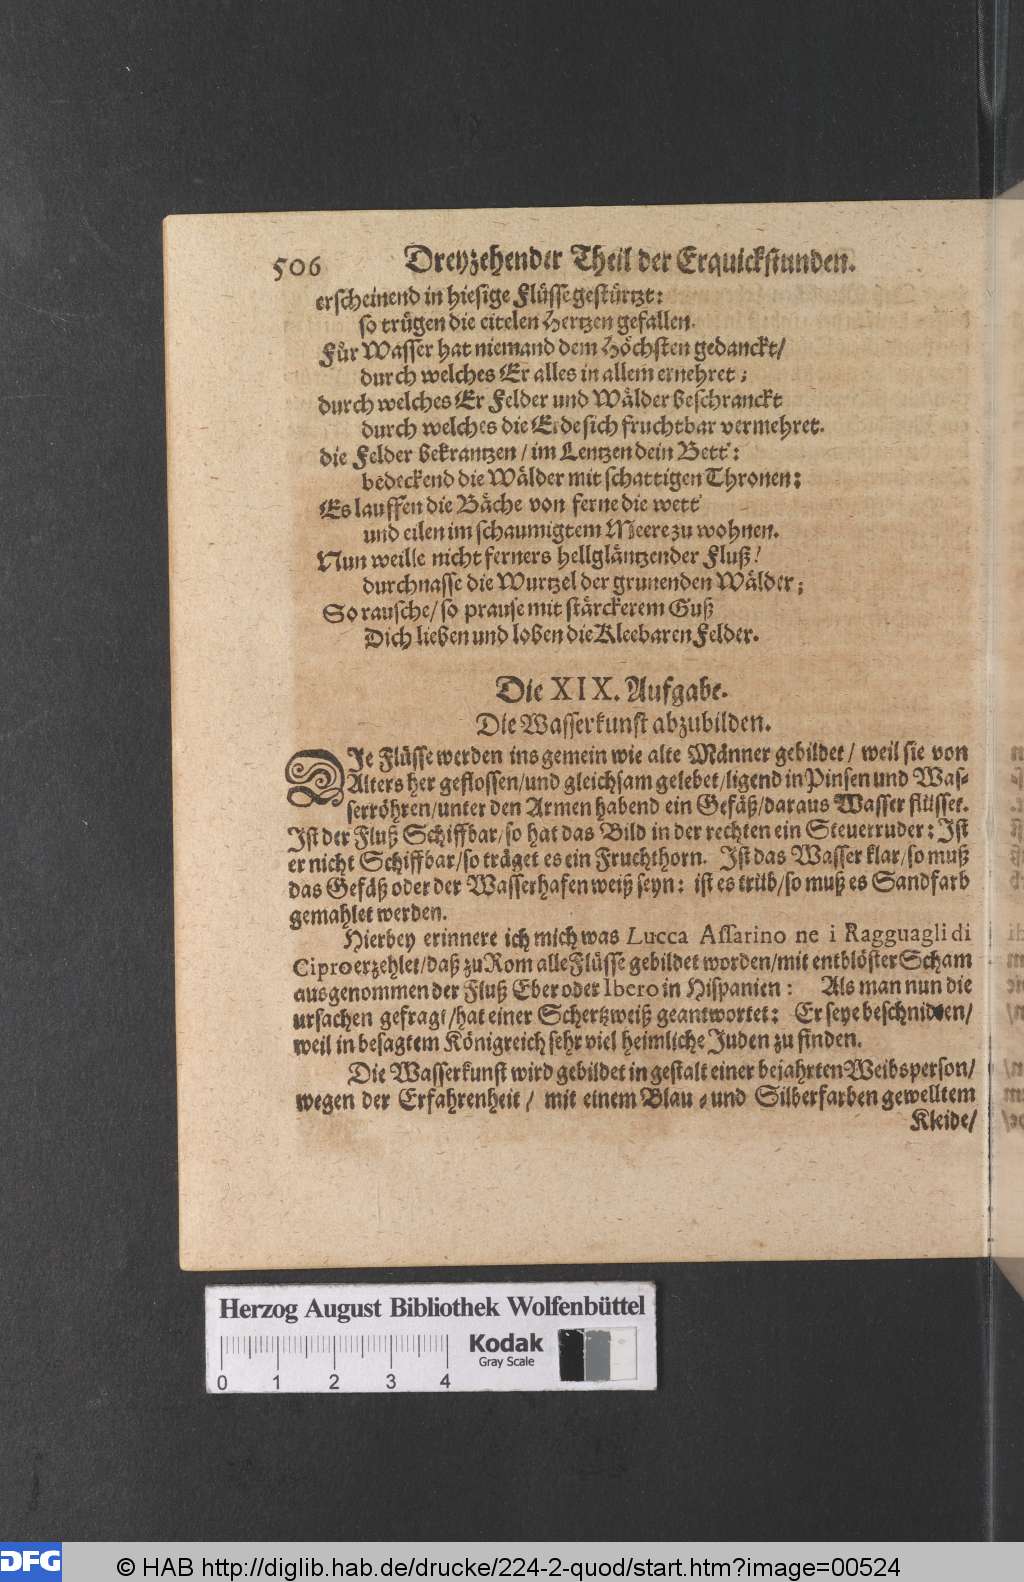 506 Dreyzehender Theil der Erquickstunden.
erscheinend in hiesige Flüsse gestürtzt:
so trügen die eitelen Hertzen gefallen.
Für Wasser hat niemand dem Höchsten gedanckt/
durch welches Er alles in allem ernehret;
durch welches Er Felder und Wälder beschranckt
durch welches die Erde sich fruchtbar vermehret.
die Felder bekrantzen / im Lentzen dein Bett:
bedeckend die Wälder mit schattigen Thronen:
Es lauffen die Bäche von ferne die wett
und eilen im schaumigtem Meere zu wohnen.
Nun weille nicht ferners hellgläntzender Fluß!
durchnasse die Wurtzel der grunenden Wälder;
So rausche/ so prause mit stärckerem Guß
Dich lieben und loben die Kleebaren Felder.
Die XIX. Aufgabe.
Die Wasserkunst abzubilden.
DIe Flüsse werden ins gemein wie alte Männer gebildet / weil sie von
Alters her geflossen/und gleichsam gelebet/ligend in Pinsen und Was-
serröhren/unter den Armen habend ein Gefäß/daraus Wasser flüsset.
Ist der Fluß Schiffbar/so hat das Bild in der rechten ein Steuerruder: Ist
er nicht Schiffbar/so träget es ein Fruchthorn. Ist das Wasser klar/so muß
das Gefäß oder der Wasserhafen weiß seyn: ist es trüb/so muß es Sandfarb
gemahlet werden.
Hierbey erinnere ich mich was Lucca Assarino ne i Ragguagli di
Cipro erzehlet/daß zu Rom alle Flüsse gebildet worden/mit entblöster Scham
ausgenommen der Fluß Eber oder Ibero in Hispanien: Als man nun die
ursachen gefragt/hat einer Schertzweiß geantwortet: Er seye beschnidten/
weil in besagtem Königreich sehr viel heimliche Juden zu finden.
Die Wasserkunst wird gebildet in gestalt einer bejahrten Weibsperson/
wegen der Erfahrenheit / mit einem Blau- und Silberfarben gewelltem
Kleide/
Herzog August Bibliothek Wolfenbüttel
Kodak
Gray Scale
0 1 2 3 4
DFG © HAB http://diglib.hab.de/drucke/224-2-quod/start.htm?image=00524